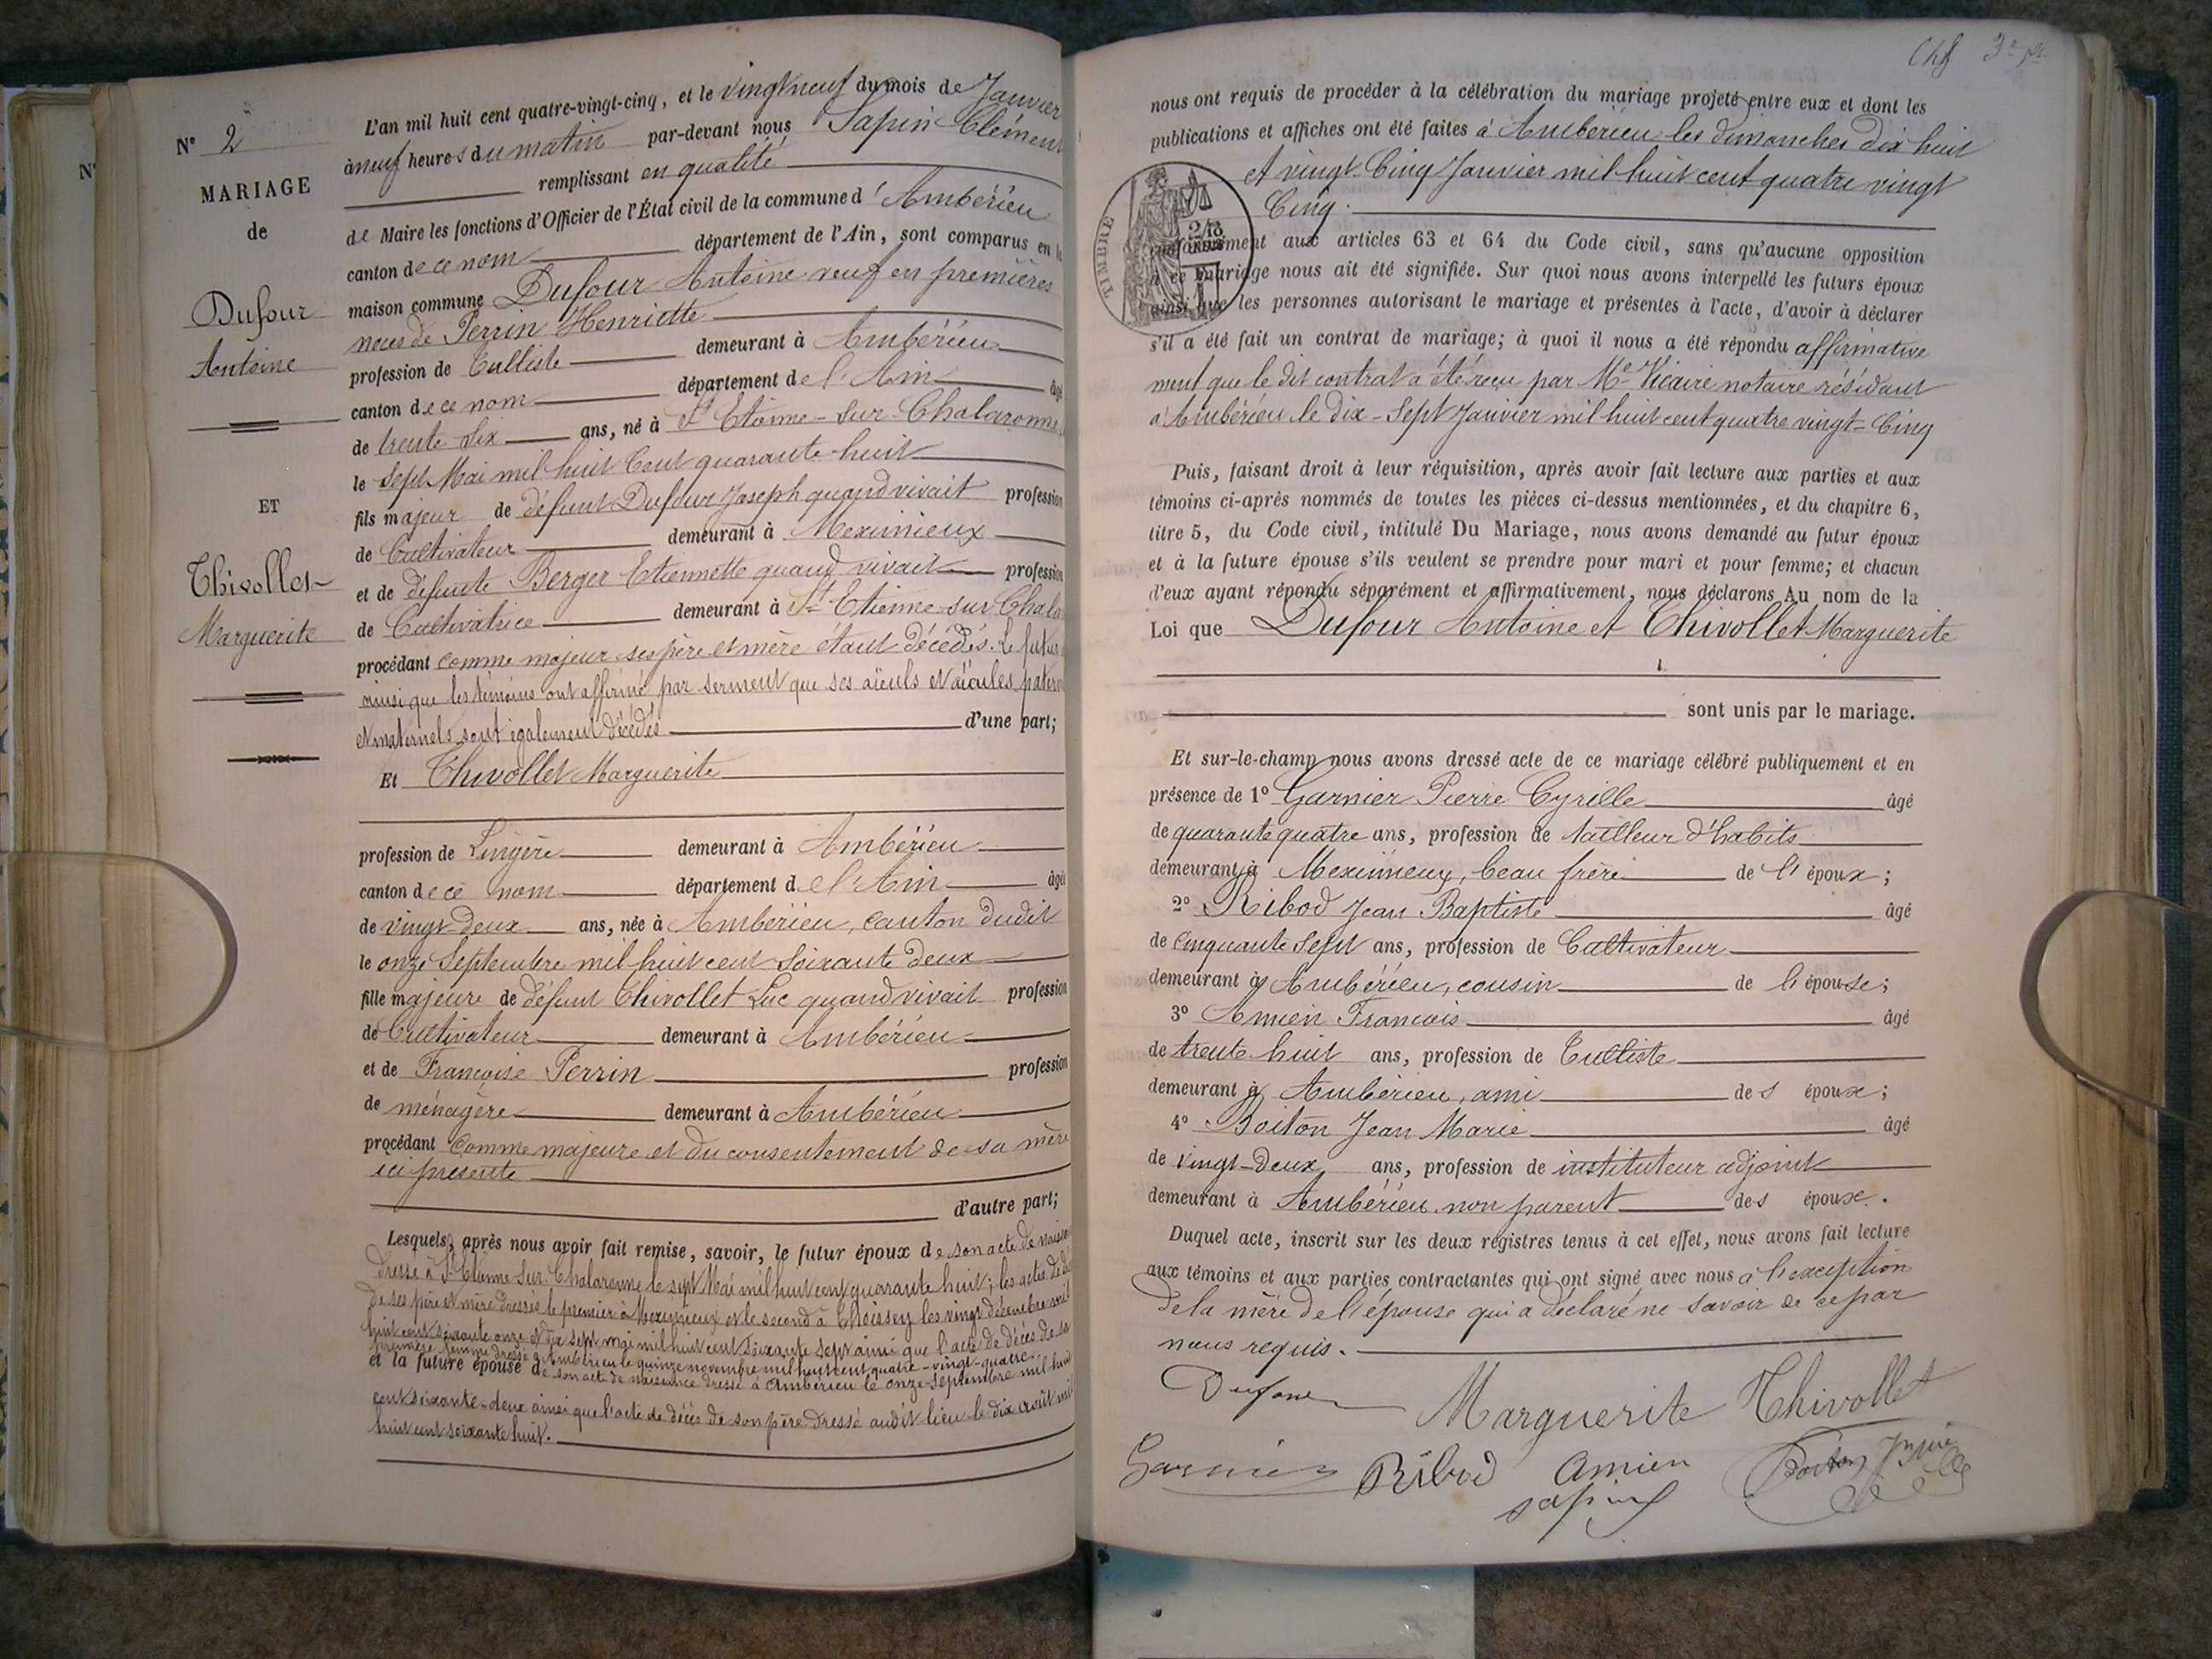 N° 2
MARIAGE
de
Dufour
Antoine
ET
Thivollet
Marguerite
L'an mil huit cent quatre-vingt-cinq, et le vingt neuf du mois de Janvier
à neuf heures du matin par-devant nous Sapin Clément
remplissant en qualité
de Maire les fonctions d'Officier de l'État civil de la commune d'Ambérieu
canton de ce nom département de l'Ain, sont comparus en la
maison commune Dufour Antoine veuf en premières
noces de Perrin Henriette
profession de Tulliste demeurant à Ambérieu
canton de ce nom département de l'Ain âgé
de trente six ans, né à St Etienne-sur-Chalaronne
le sept Mai mil huit Cent quarante-huit
fils majeur de défunt Dufour Joseph quand vivait profession
de Cultivateur demeurant à Meximieux
et de défunte Berger Etiennette quand vivait profession
de Cultivatrice demeurant à St Etienne-sur-Chala
procédant comme majeur ses père et mère étant décédés. Le futur
ainsi que les témoins ont affirmé par serment que ses aïeuls et aïeules patern
et maternels sont également décédés d'une part;
Et Thivollet Marguerite
profession de Lingère demeurant à Ambérieu
canton de ce nom département de l'Ain âgée
de vingt-deux ans, née à Ambérieu, canton dudit
le onze Septembre mil huit cent soixante deux
fille majeure de défunt Thivollet Luc quand vivait profession
de Cultivateur demeurant à Ambérieu
et de Françoise Perrin profession
de ménagère demeurant à Ambérieu
procédant comme majeure et du consentement de sa mère
ici présente
d'autre part;
Lesquels, après nous avoir fait remise, savoir, le futur époux de son acte de naissan
dressé à St Etienne-sur-Chalaronne le sept Mai mil huit cent quarante huit; les actes de
de ses père et mère dressés le premier à Meximieux et le second à Thoissey les vingt décembre mil
huit cent soixante onze et dix sept mai mil huit cent soixante sept ainsi que l'acte de décès de sa
première femme dressé à Ambérieu le quinze novembre mil huit cent quatre-vingt-quatre
et la future épouse de son acte de naissance dressé à Ambérieu le onze septembre mil huit
cent soixante-deux ainsi que l'acte de décès de son père dressé audit lieu le dix août mil
huit cent soixante huit.
nous ont requis de procéder à la célébration du mariage projeté entre eux et dont les
publications et affiches ont été faites à Ambérieu les dimanches dix huit
et vingt Cinq Janvier mil huit cent quatre vingt
Cinq.
TIMBRE
conformément aux articles 63 et 64 du Code civil, sans qu'aucune opposition
à ce mariage nous ait été signifiée. Sur quoi nous avons interpellé les futurs époux
ainsi que les personnes autorisant le mariage et présentes à l'acte, d'avoir à déclarer
s'il a été fait un contrat de mariage; à quoi il nous a été répondu affirmative
ment que le dit contrat a été reçu par Me Vicaire notaire résidant
à Ambérieu le dix-sept Janvier mil huit cent quatre vingt-Cinq
Puis, faisant droit à leur réquisition, après avoir fait lecture aux parties et aux
témoins ci-après nommés de toutes les pièces ci-dessus mentionnées, et du chapitre 6,
titre 5, du Code civil, intitulé Du Mariage, nous avons demandé au futur époux
et à la future épouse s'ils veulent se prendre pour mari et pour femme; et chacun
d'eux ayant répondu séparément et affirmativement, nous déclarons Au nom de la
Loi que Dufour Antoine et Thivollet Marguerite
sont unis par le mariage.
Et sur-le-champ nous avons dressé acte de ce mariage célébré publiquement et en
présence de 1° Garnier Pierre Cyrille âgé
de quarante quatre ans, profession de tailleur d'habits
demeurant à Meximieux, beau frère de l'époux;
2° Ribod Jean Baptiste âgé
de Cinquante sept ans, profession de Cultivateur
demeurant à Ambérieu, cousin de l'épouse;
3° Amien François âgé
de trente huit ans, profession de Tulliste
demeurant à Ambérieu, ami des époux;
4° Boiton Jean Marie âgé
de vingt-deux ans, profession de instituteur adjoint
demeurant à Ambérieu non parent des époux.
Duquel acte, inscrit sur les deux registres tenus à cet effet, nous avons fait lecture
aux témoins et aux parties contractantes qui ont signé avec nous à l'exception
de la mère de l'épouse qui a déclaré ne savoir de ce par
nous requis.
Dufour Marguerite Thivollet
Garnier Ribod Amien Boiton
Sapin